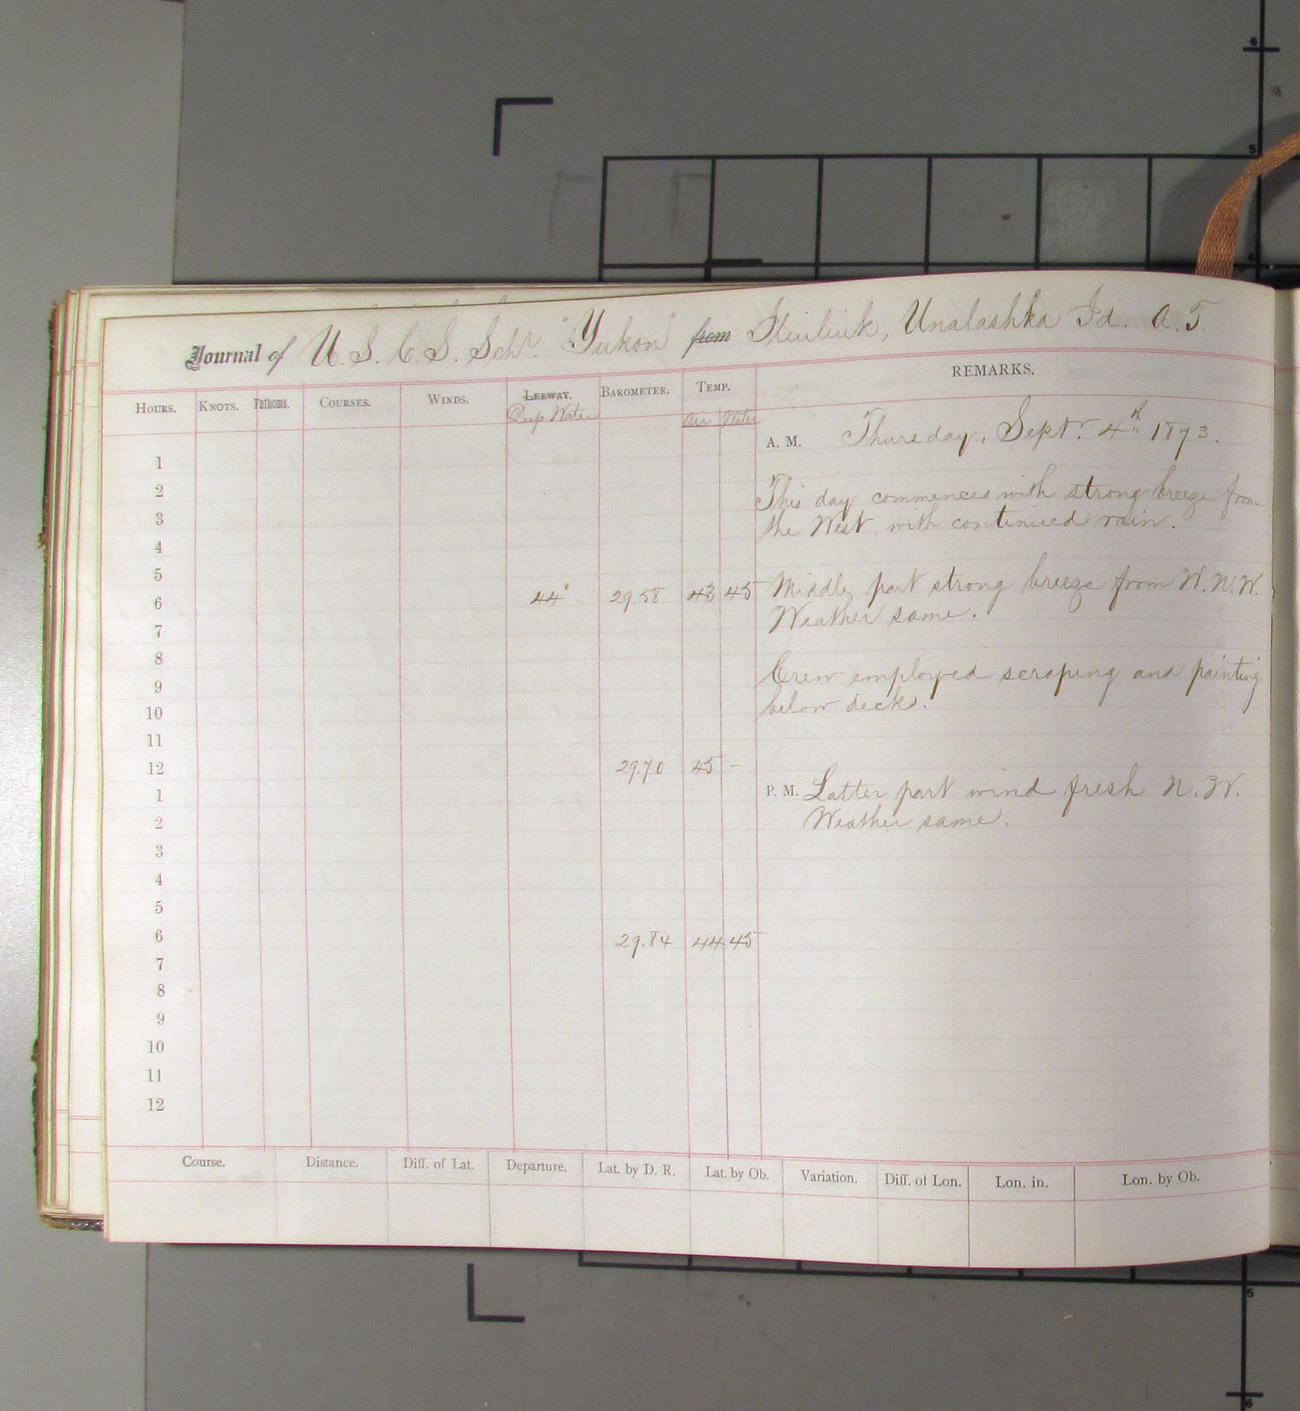 Journal of U. S. C. S. Schr. "Yukon" from Iliuliuk, Unalashka Id. A. T.
HOURS. KNOTS. Fathoms. COURSES. WINDS. LEEWAY. BAROMETER. TEMP. REMARKS.
Deep Water Air Water
A. M. Thursday, Sept. 4th 1873.
1
2 This day commences with strong breeze from
3 the West, with continued rain.
4
5
6 44° 29.58 43 45 Middle part strong breeze from W. N. W.
7 Weather same.
8
9 Crew employed scraping and painting
10 below deck.
11
12 29.70 45 -
1 P. M. Latter part wind fresh N. W.
2 Weather same.
3
4
5
6 29.84 44 45
7
8
9
10
11
12
Course. Distance. Diff. of Lat. Departure. Lat. by D. R. Lat. by Ob. Variation. Diff. of Lon. Lon. in. Lon. by Ob.